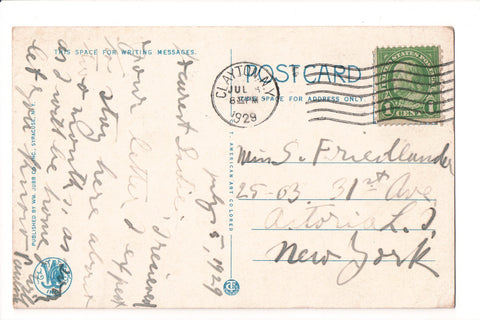 THIS SPACE FOR WRITING MESSAGES.
POSTCARD
THIS SPACE FOR ADDRESS ONLY.
CLAYTON, N.Y.
JUL
1929
UNITED STATES POSTAGE
1 1
CENT
July 5, 1929
Dearest Sadie: I received
your letter I expect
to stay here about
two months, as soon
as I will be home I
let you know
Miss S. Friedlander
25-03 31st Ave
Astoria L. I.
New York
PUBLISHED BY WM. JUBB CO., INC., SYRACUSE, N.Y.
C. T. AMERICAN ART COLORED